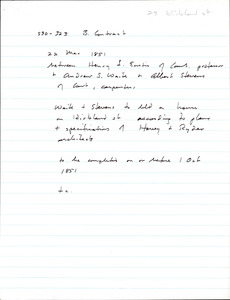 23 Kirkland st
530-323 B. Contract
22 Mar 1851
between Henry L. Eustis of Camb, professor
+ Andrew S. Waitt + Albert Stevens
of Camb, carpenters
Waitt + Stevens to build a house
on Kirkland st according to plans
+ specifications of Henry + Ryder
architects
to be completed on or before 1 Oct
1851